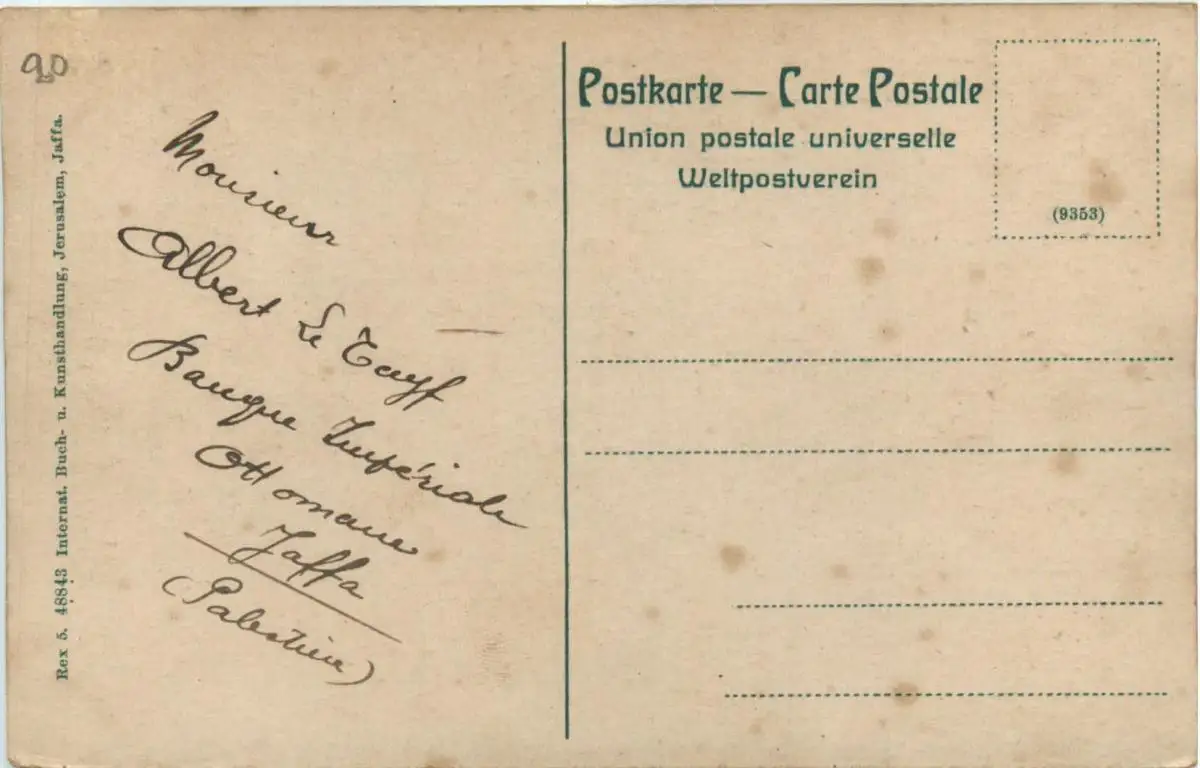 90
Rex 5. 48843 Internat. Buch- u. Kunsthandlung, Jerusalem, Jaffa.
Monsieur
Albert Le Tayf
Banque Impériale
Ottomane
Jaffa
(Palestine)
Postkarte — Carte Postale
Union postale universelle
Weltpostverein
(9353)